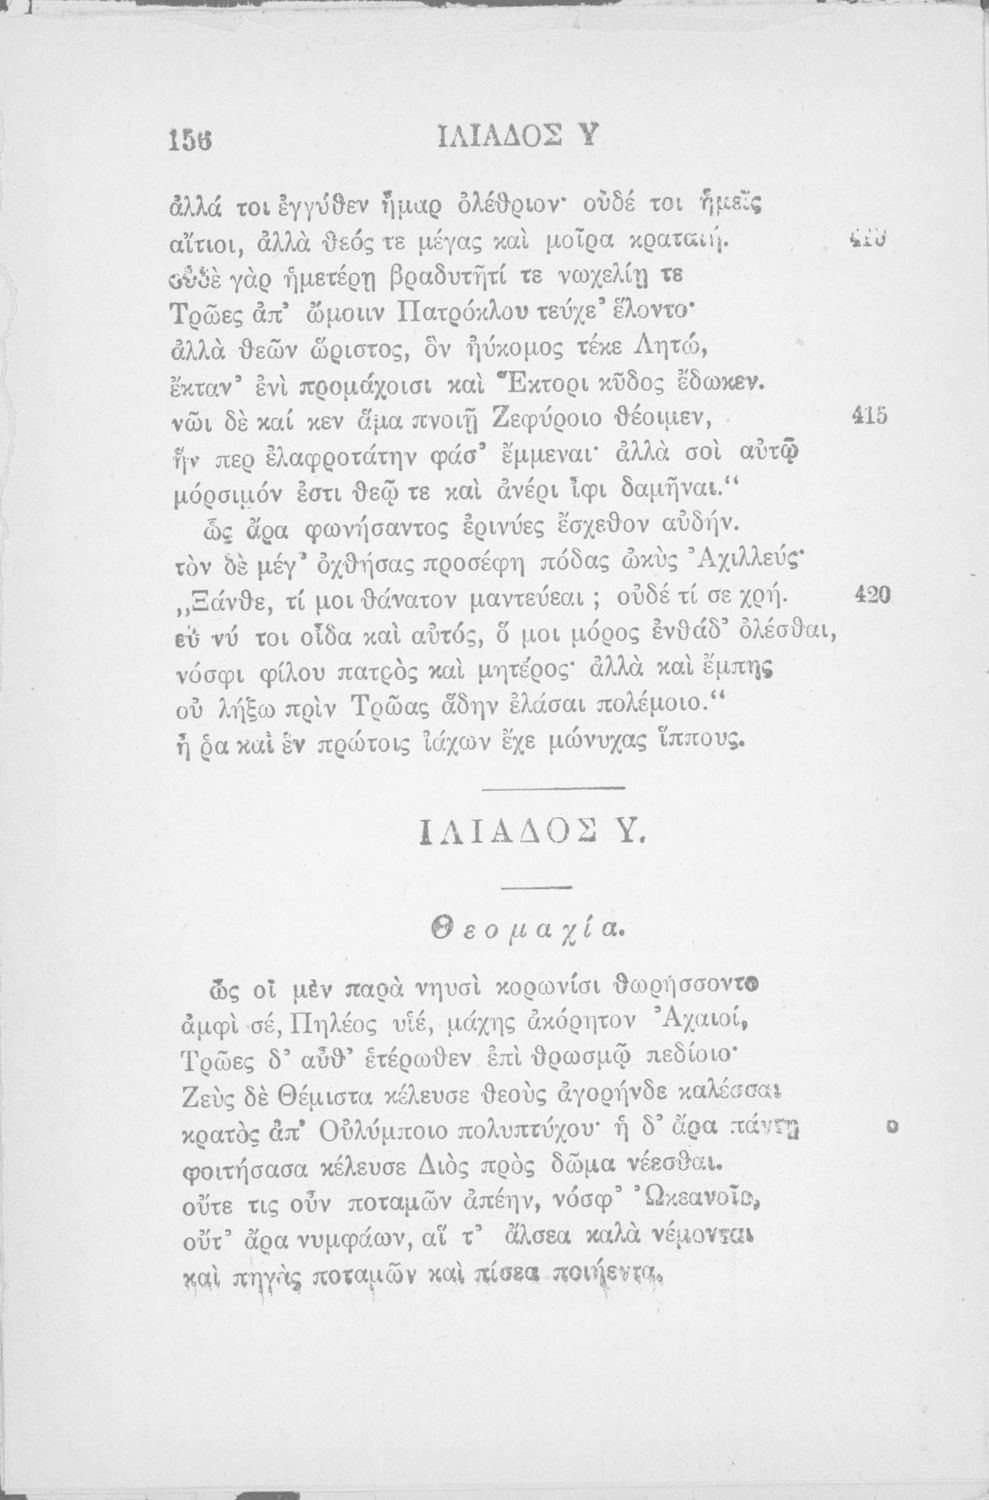 156 ΙΛΙΑΔΟΣ Υ
ἀλλά τοι ἐγγύθεν ἦμαρ ὀλέθριον· οὐδέ τοι ἡμεῖς
αἴτιοι, ἀλλὰ θεός τε μέγας καὶ μοῖρα κραταιή. 410
οὐδὲ γὰρ ἡμετέρῃ βραδυτῆτί τε νωχελίῃ τε
Τρῶες ἀπ’ ὤμοιιν Πατρόκλου τεύχε’ ἕλοντο·
ἀλλὰ θεῶν ὥριστος, ὃν ἠύκομος τέκε Λητώ,
ἔκταν’ ἐνὶ προμάχοισι καὶ Ἕκτορι κῦδος ἔδωκεν.
νῶι δὲ καί κεν ἅμα πνοιῇ Ζεφύροιο θέοιμεν, 415
ἥν περ ἐλαφροτάτην φάσ’ ἔμμεναι· ἀλλὰ σοὶ αὐτῷ
μόρσιμόν ἐστι θεῷ τε καὶ ἀνέρι ἶφι δαμῆναι.“
ὣς ἄρα φωνήσαντος ἐρινύες ἔσχεθον αὐδήν.
τὸν δὲ μέγ’ ὀχθήσας προσέφη πόδας ὠκὺς Ἀχιλλεύς·
„Ξάνθε, τί μοι θάνατον μαντεύεαι ; οὐδέ τί σε χρή. 420
εὖ νύ τοι οἶδα καὶ αὐτός, ὅ μοι μόρος ἐνθάδ’ ὀλέσθαι,
νόσφι φίλου πατρὸς καὶ μητέρος· ἀλλὰ καὶ ἔμπης
οὐ λήξω πρὶν Τρῶας ἅδην ἐλάσαι πολέμοιο.“
ἦ ῥα καὶ ἐν πρώτοις ἰάχων ἔχε μώνυχας ἵππους.
ΙΛΙΑΔΟΣ Υ.
Θεομαχία.
ὣς οἳ μὲν παρὰ νηυσὶ κορωνίσι θωρήσσοντο
ἀμφὶ σέ, Πηλέος υἱέ, μάχης ἀκόρητον Ἀχαιοί,
Τρῶες δ’ αὖθ’ ἑτέρωθεν ἐπὶ θρωσμῷ πεδίοιο·
Ζεὺς δὲ Θέμιστα κέλευσε θεοὺς ἀγορήνδε καλέσσαι
κρατὸς ἀπ’ Οὐλύμποιο πολυπτύχου· ἡ δ’ ἄρα πάντῃ
φοιτήσασα κέλευσε Διὸς πρὸς δῶμα νέεσθαι.
οὔτε τις οὖν ποταμῶν ἀπέην, νόσφ’ Ὠκεανοῖο,
οὔτ’ ἄρα νυμφάων, αἵ τ’ ἄλσεα καλὰ νέμονται
καὶ πηγὰς ποταμῶν καὶ πίσεα ποιήεντα.